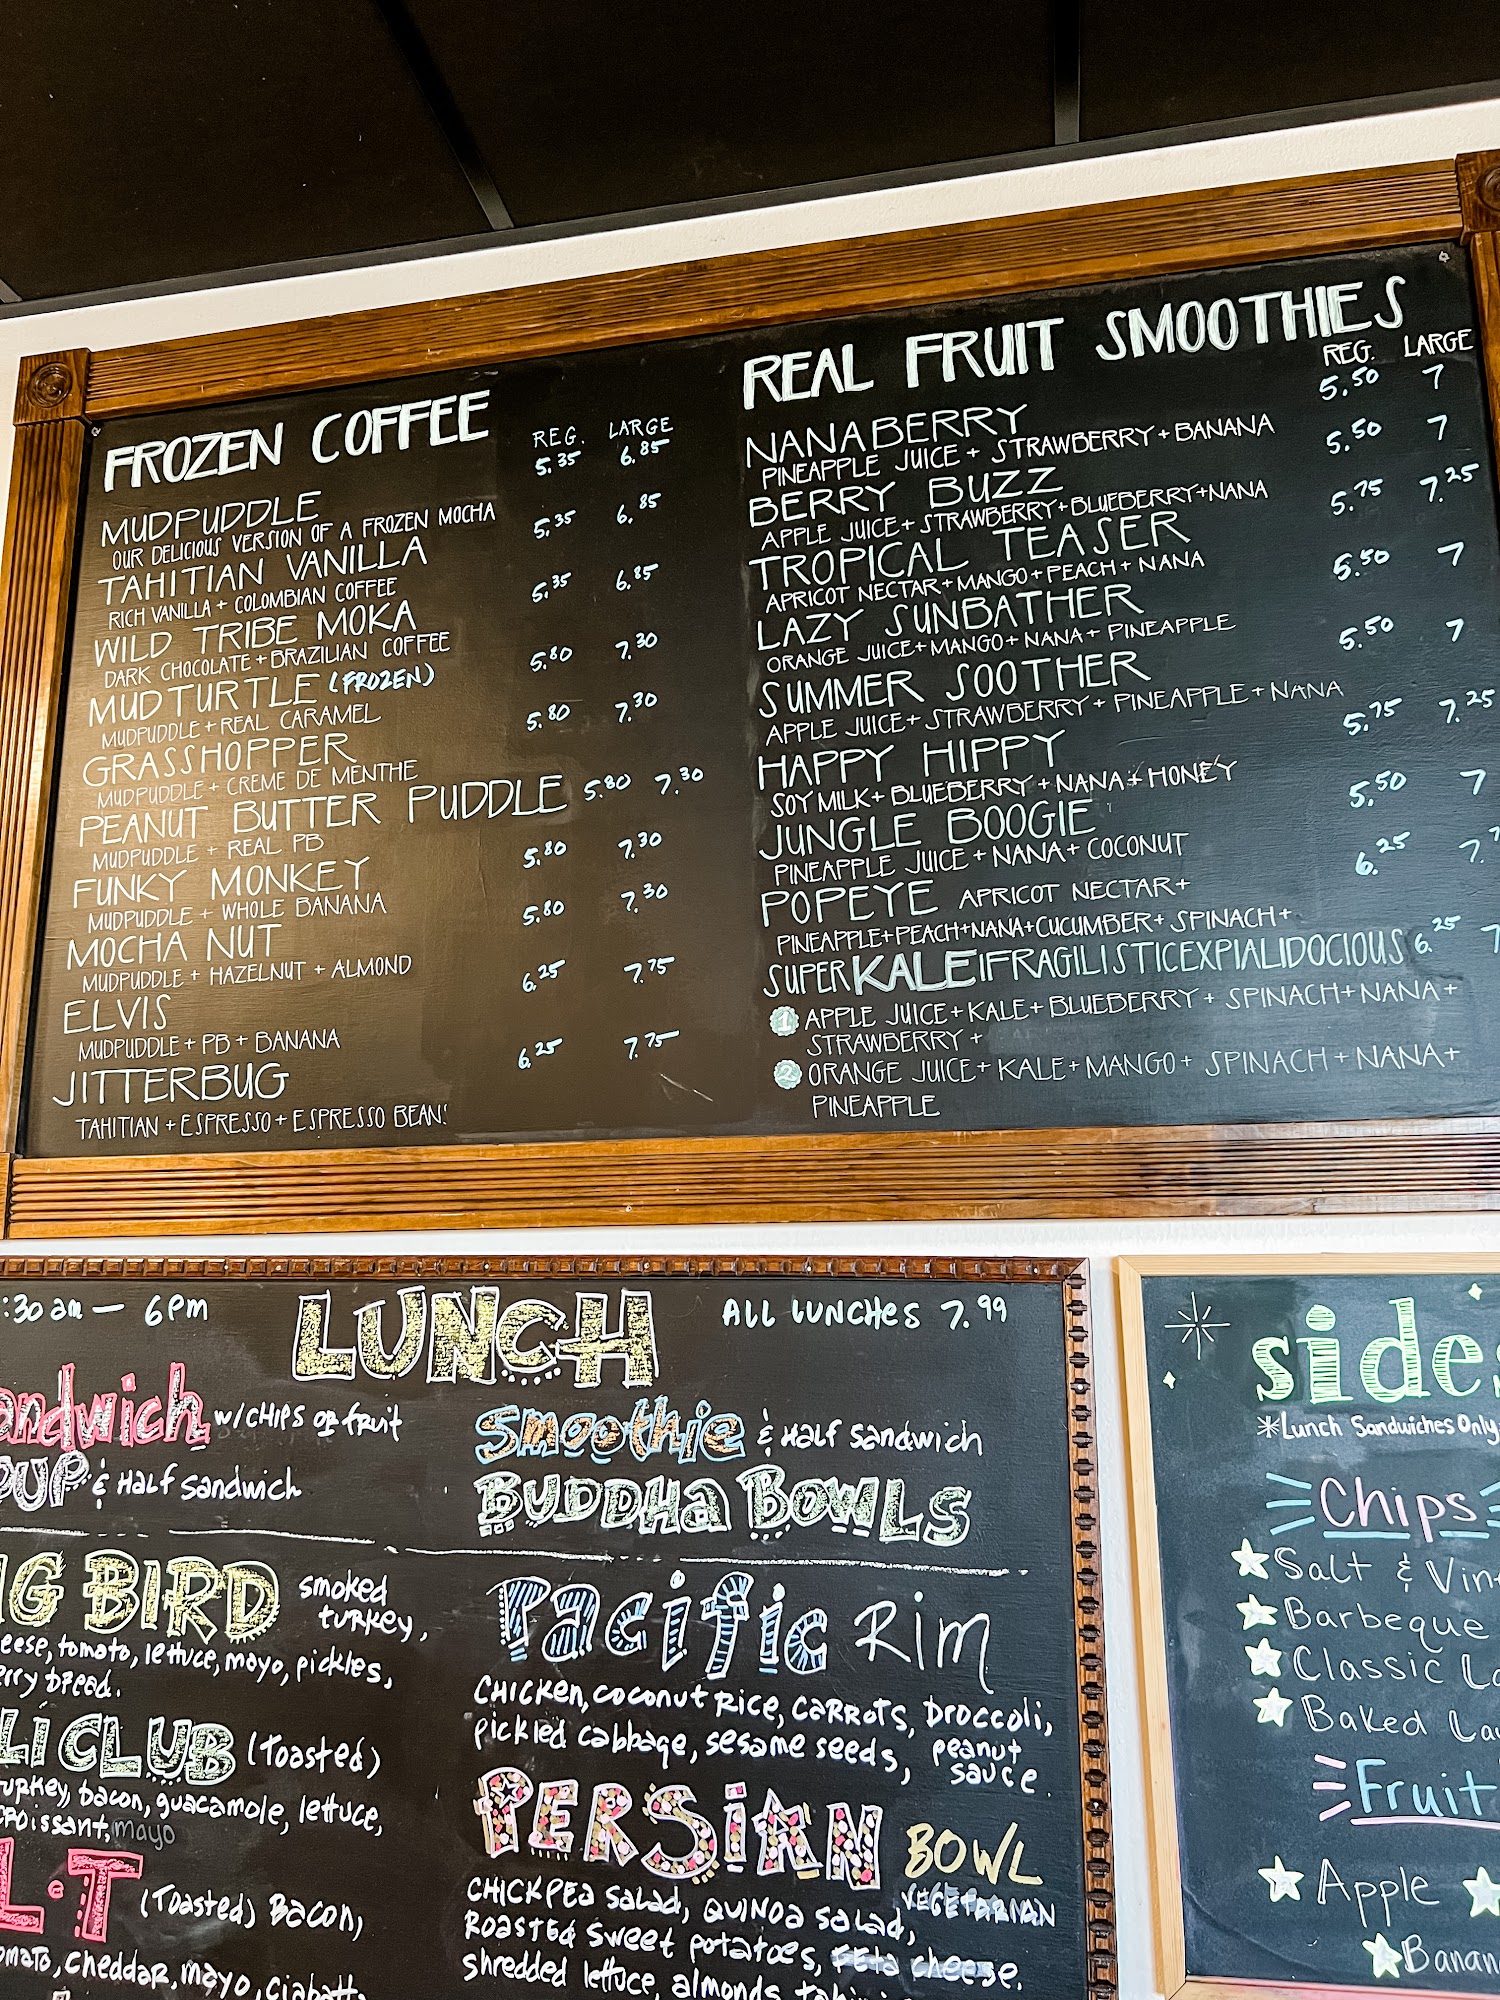 FROZEN COFFEE
REG. LARGE
MUDPUDDLE 5.35 6.85
OUR DELICIOUS VERSION OF A FROZEN MOCHA
TAHITIAN VANILLA 5.35 6.85
RICH VANILLA + COLOMBIAN COFFEE
WILD TRIBE MOKA 5.35 6.85
DARK CHOCOLATE + BRAZILIAN COFFEE
MUDTURTLE (FROZEN) 5.80 7.30
MUDPUDDLE + REAL CARAMEL
GRASSHOPPER 5.80 7.30
MUDPUDDLE + CREME DE MENTHE
PEANUT BUTTER PUDDLE 5.80 7.30
MUDPUDDLE + REAL PB
FUNKY MONKEY 5.80 7.30
MUDPUDDLE + WHOLE BANANA
MOCHA NUT 5.80 7.30
MUDPUDDLE + HAZELNUT + ALMOND
ELVIS 6.25 7.75
MUDPUDDLE + PB + BANANA
JITTERBUG 6.25 7.75
TAHITIAN + ESPRESSO + ESPRESSO BEAN!
REAL FRUIT SMOOTHIES
REG. LARGE
NANABERRY 5.50 7
PINEAPPLE JUICE + STRAWBERRY + BANANA
BERRY BUZZ 5.50 7
APPLE JUICE + STRAWBERRY + BLUEBERRY + NANA
TROPICAL TEASER 5.75 7.25
APRICOT NECTAR + MANGO + PEACH + NANA
LAZY SUNBATHER 5.50 7
ORANGE JUICE + MANGO + NANA + PINEAPPLE
SUMMER SOOTHER 5.50 7
APPLE JUICE + STRAWBERRY + PINEAPPLE + NANA
HAPPY HIPPY 5.75 7.25
SOY MILK + BLUEBERRY + NANA + HONEY
JUNGLE BOOGIE 5.50 7
PINEAPPLE JUICE + NANA + COCONUT
POPEYE APRICOT NECTAR + 6.25 7.
PINEAPPLE + PEACH + NANA + CUCUMBER + SPINACH +
SUPERKALEIFRAGILISTICEXPIALIDOCIOUS 6.25 7
1 APPLE JUICE + KALE + BLUEBERRY + SPINACH + NANA +
STRAWBERRY +
2 ORANGE JUICE + KALE + MANGO + SPINACH + NANA +
PINEAPPLE
:30am — 6pm LUNCH ALL LUNCHES 7.99
andwich w/CHIPS OR fruit
OUP & Half Sandwich
Smoothie & Half Sandwich
BUDDHA BOWLS
G BIRD smoked
turkey,
eese, tomato, lettuce, mayo, pickles,
rry bread.
LI CLUB (Toasted)
urkey, bacon, guacamole, lettuce,
croissant, mayo
L·T (Toasted) Bacon,
omato, cheddar, mayo, ciabatt
Pacific Rim
CHICKen, coconut rice, carrots, broccoli,
pickled cabbage, sesame seeds, peanut
sauce.
PERSIAN BOWL
VEGETARIAN
CHICKPEA salad, QUINOA salad,
ROASTED sweet potatoes, FETA cheese,
shredded lettuce, almonds, tahi
side
*Lunch Sandwiches Only
Chips
Salt & Vin
Barbeque
Classic La
Baked Lay
Fruit
Apple
Banan